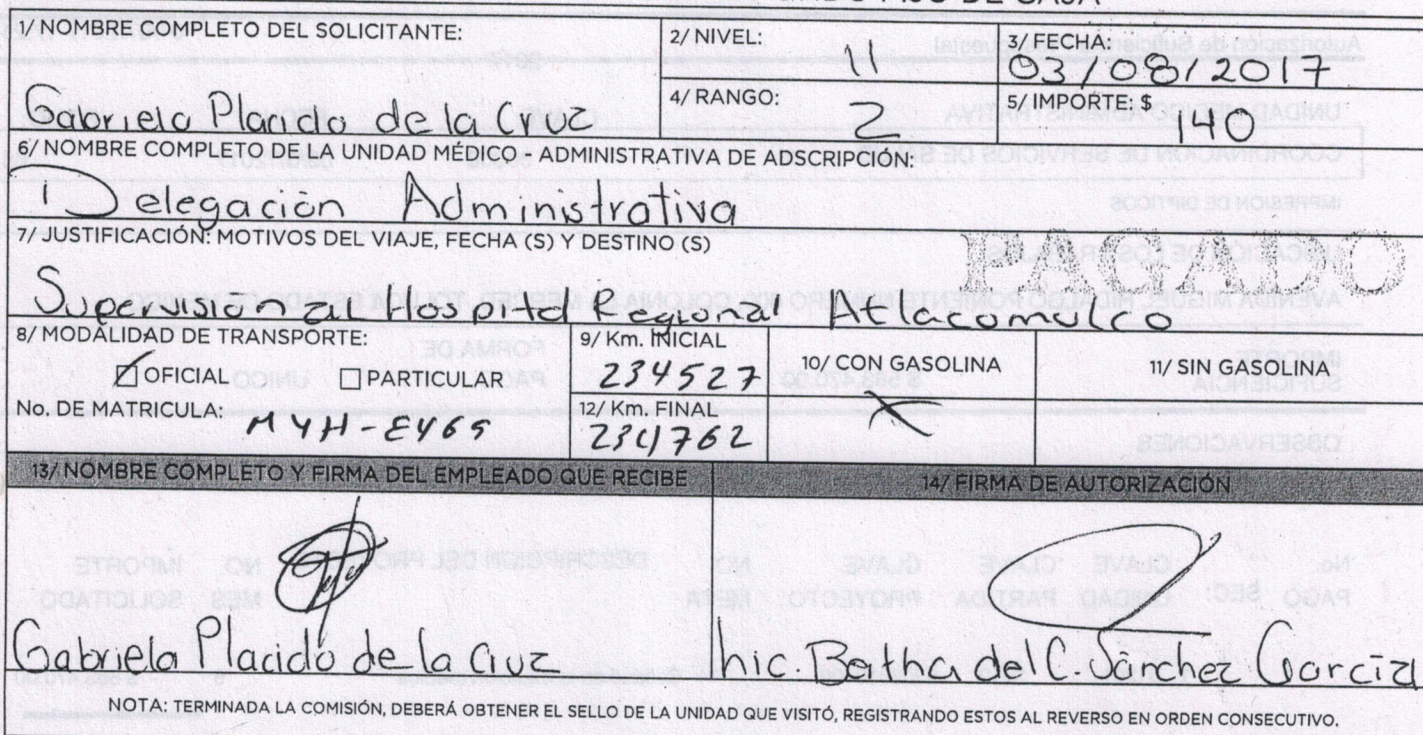 FONDO FIJO DE CAJA
1/ NOMBRE COMPLETO DEL SOLICITANTE:
Gabriela Placido de la Cruz
2/ NIVEL:
11
3/ FECHA:
03/08/2017
4/ RANGO:
2
5/ IMPORTE: $
140
6/ NOMBRE COMPLETO DE LA UNIDAD MÉDICO - ADMINISTRATIVA DE ADSCRIPCIÓN:
Delegación Administrativa
7/ JUSTIFICACIÓN: MOTIVOS DEL VIAJE, FECHA (S) Y DESTINO (S)
PAGADO
Supervisión al Hospital Regional Atlacomulco
8/ MODALIDAD DE TRANSPORTE:
OFICIAL PARTICULAR
No. DE MATRICULA:
9/ Km. INICIAL
234527
10/ CON GASOLINA
X
11/ SIN GASOLINA
12/ Km. FINAL
234762
13/ NOMBRE COMPLETO Y FIRMA DEL EMPLEADO QUE RECIBE
14/ FIRMA DE AUTORIZACIÓN
Gabriela Placido de la Cruz
Bertha del C. Sánchez García
NOTA: TERMINADA LA COMISIÓN, DEBERÁ OBTENER EL SELLO DE LA UNIDAD QUE VISITÓ, REGISTRANDO ESTOS AL REVERSO EN ORDEN CONSECUTIVO.